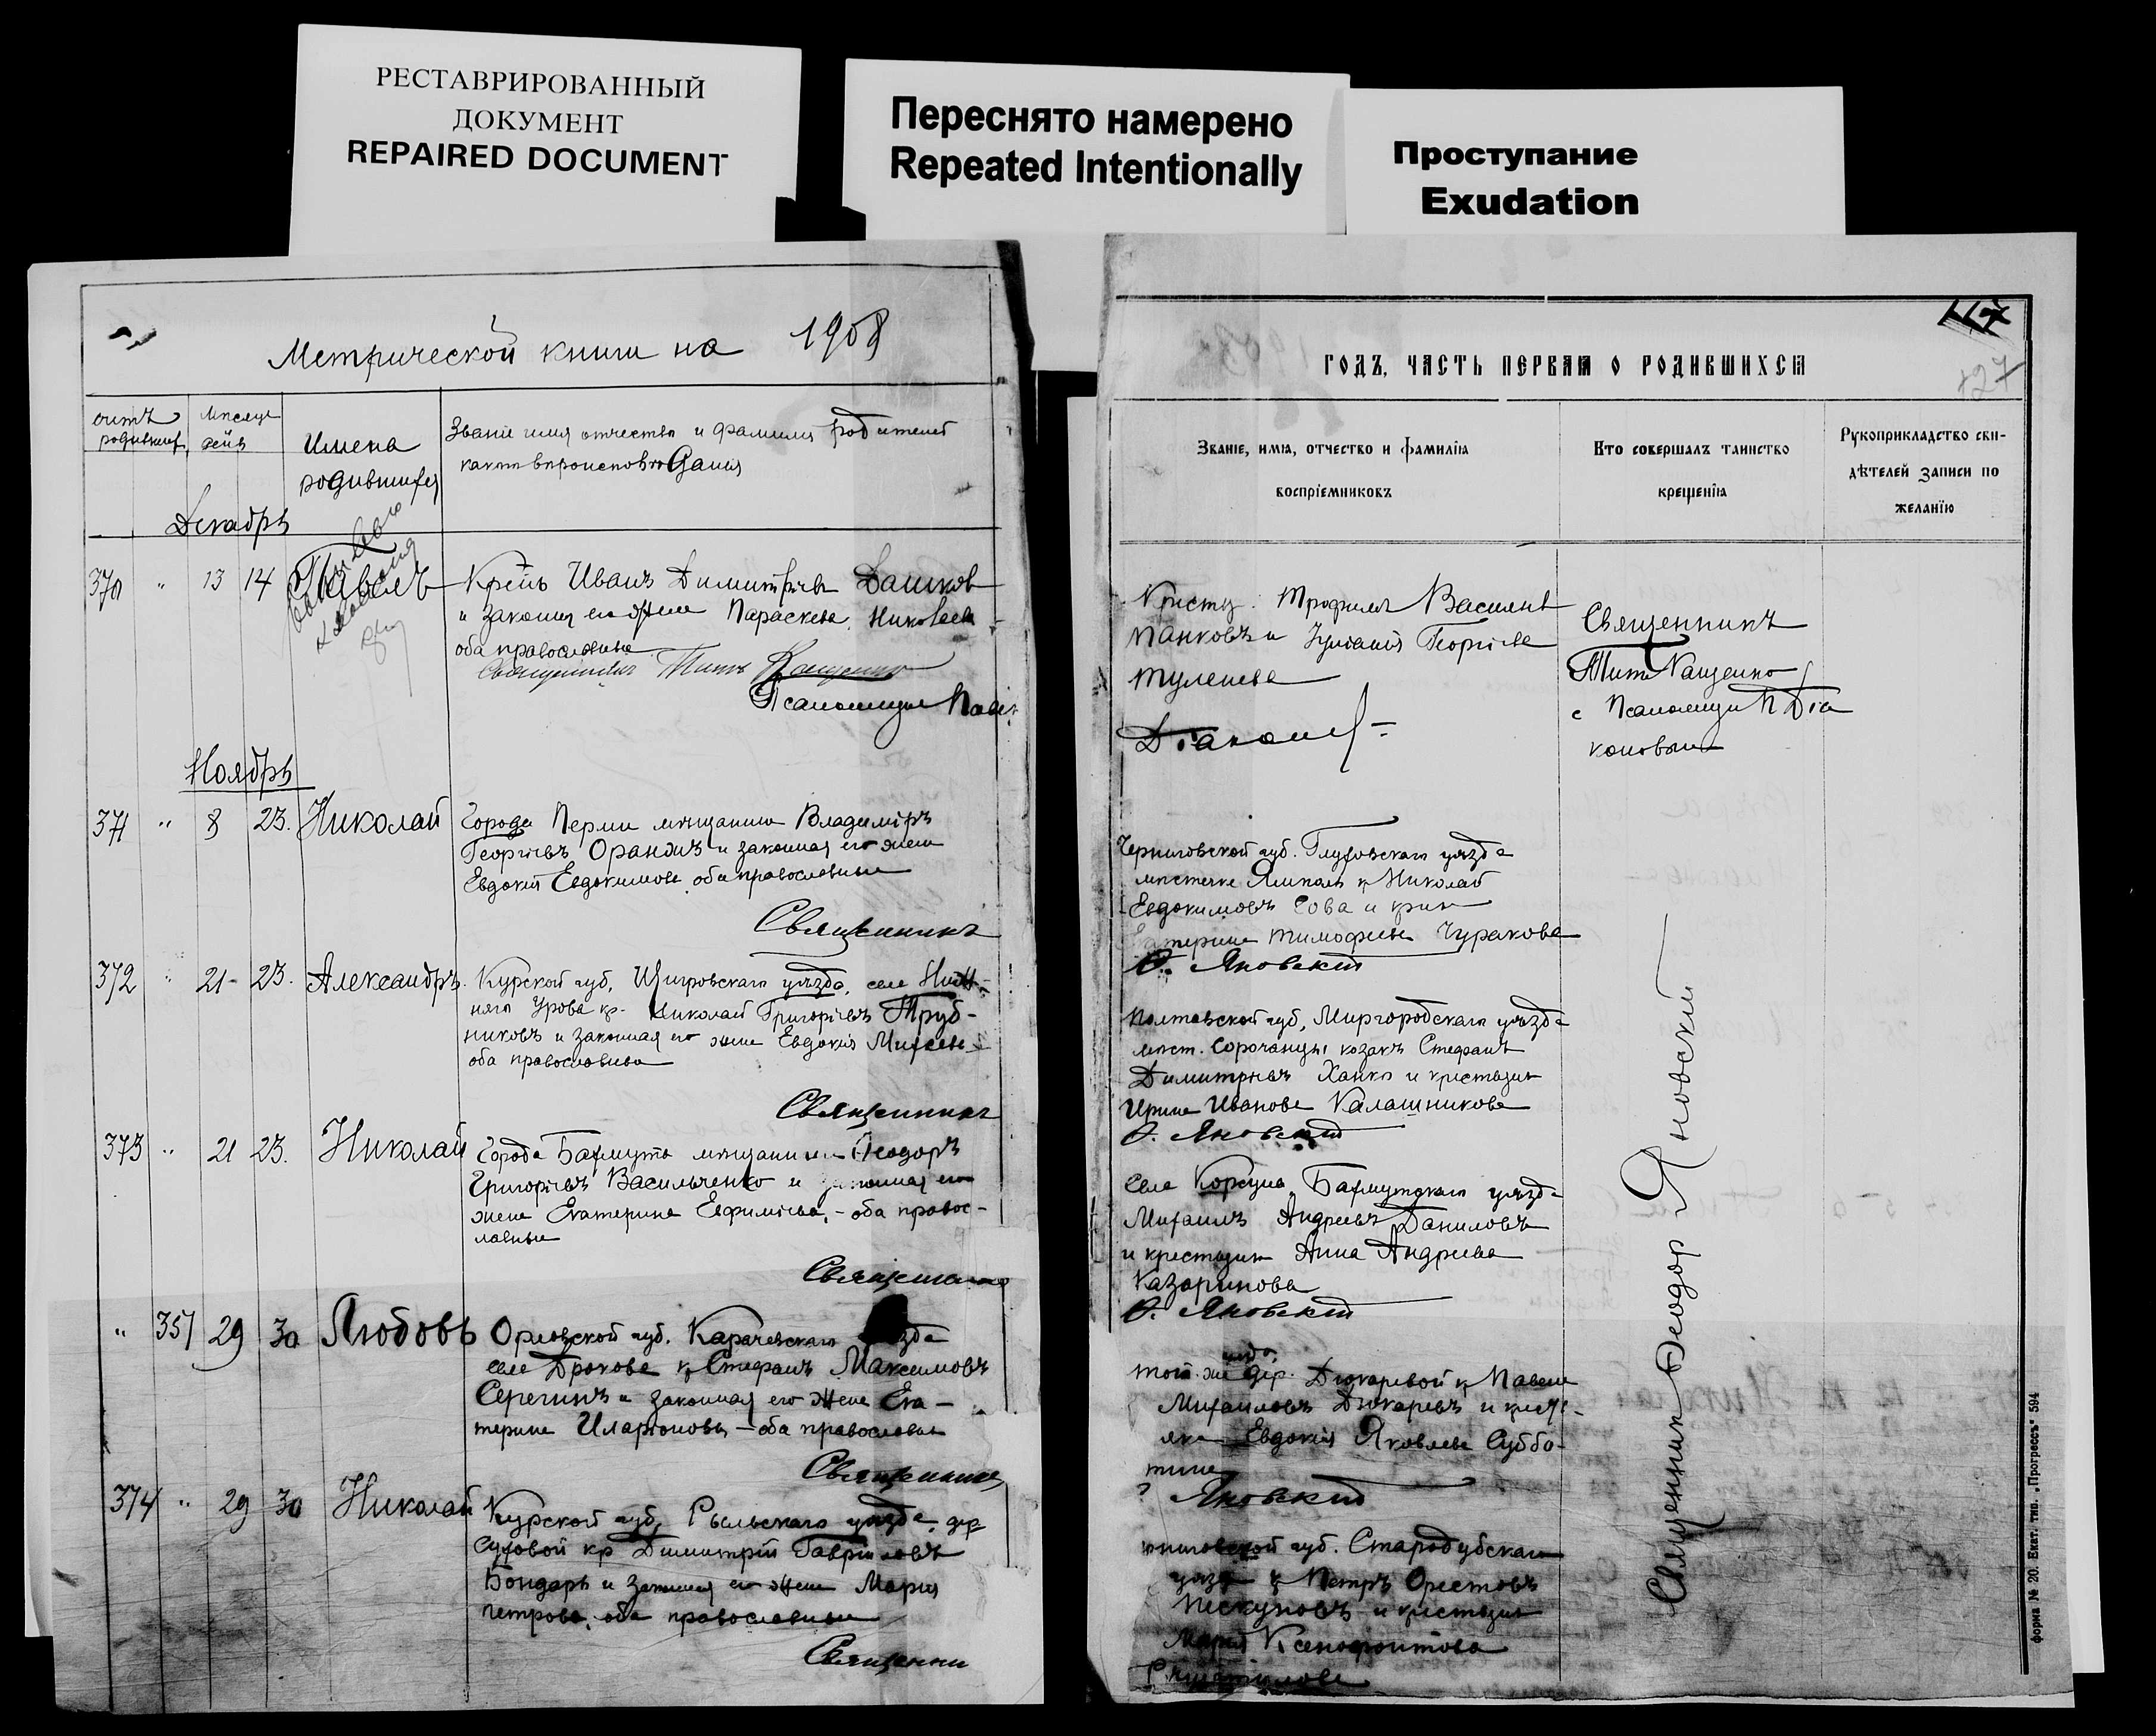 РЕСТАВРИРОВАННЫЙ
ДОКУМЕНТ
REPAIRED DOCUMENT
Переснято намерено
Repeated Intentionally
Проступание
Exudation
Метрической книги на 1908
счетъ
родившихся
Мѣсяцъ
дѣнь
Имена
родившихся
Званіе имя отчество и фамилія родителей
Декабрь
370 " 13 14 Павелъ
Кр-нъ Иванъ Димитріевъ Дашков
и законная его жена Параскева
оба православные
Священникъ Титъ Кащенко
Псаломщик
Ноябрь
371 " 8 23. Николай
Города Перми мѣщанинъ Владиміръ
Георгіевъ Оранжъ и законная его жена
Евдокія Евдокимова оба православные
Священникъ
372 " 21 - 23. Александръ
Курской губ, Щигровскаго уѣзда, села Ниж-
няго кр. Николай Григорьевъ Труб-
никовъ и законная его жена Евдокія
оба православные
Священникъ
373 " 21 23. Николай
Города Бахмута мѣщанинъ Ѳеодоръ
Григорьевъ Васильченко и законная его
жена Екатерина Евфиміева, - оба правос-
лавные
Священникъ
" 357 29 30 Любовь
Орловской губ. Карачевскаго уѣзда
села Дронова кр Стефанъ Максимовъ
Серегинъ и законная его жена Ека-
терина Иларіонова - оба православные
Священникъ
374 " 29 30 Николай
Курской губ, Рыльскаго уѣзда, дер
Суховой кр Димитрій Гавриловъ
Бондарь и законная его жена Марія
Петрова, оба православные
Священни
127
ГОДЪ, ЧАСТЬ ПЕРВАЯ О РОДИВШИХСЯ
Званіе, имя, отчество и фамилія
воспріемниковъ
Кто совершалъ таинство
крещенія
Рукоприкладство сви-
дѣтелей записи по
желанію
Трофимъ Василіевъ
Панковъ и Георгіева
Священникъ
Титъ Кащенко
с Псаломщи П Діа
коновым
Черниговской губ. Глуховскаго уѣзда
мѣстечка Ямполь кр Николай
Евдокимовъ Сова и крын
Екатерина Тимофеева Чуракова
Ѳ. Яновскій
Полтавской губ, Миргородскаго уѣзда
мѣст. Сорочанцы козакъ Стефанъ
Димитріевъ Ханко и крестьян
Ирина Иванова Калашникова
Ѳ. Яновскій
Села Корсуна Бахмутскаго уѣзда
Михаилъ Андреевъ Даниловъ
и крестьян Анна Андреева
Казаринова
Ѳ. Яновскій
той-же дер. Дюкаревой кр Павелъ
Михаиловъ Дюкаревъ и крест-
янка Евдокія Яковлева Суббо-
тина
Яновскій
губ. Стародубскаго
уѣзда кр Петръ Орестовъ
Пескуновъ и крестьян
Марія Ксенофонтова
Священник Ѳеодор Яновскій
форма № 20. Екат. тип. „Прогрессъ" 594